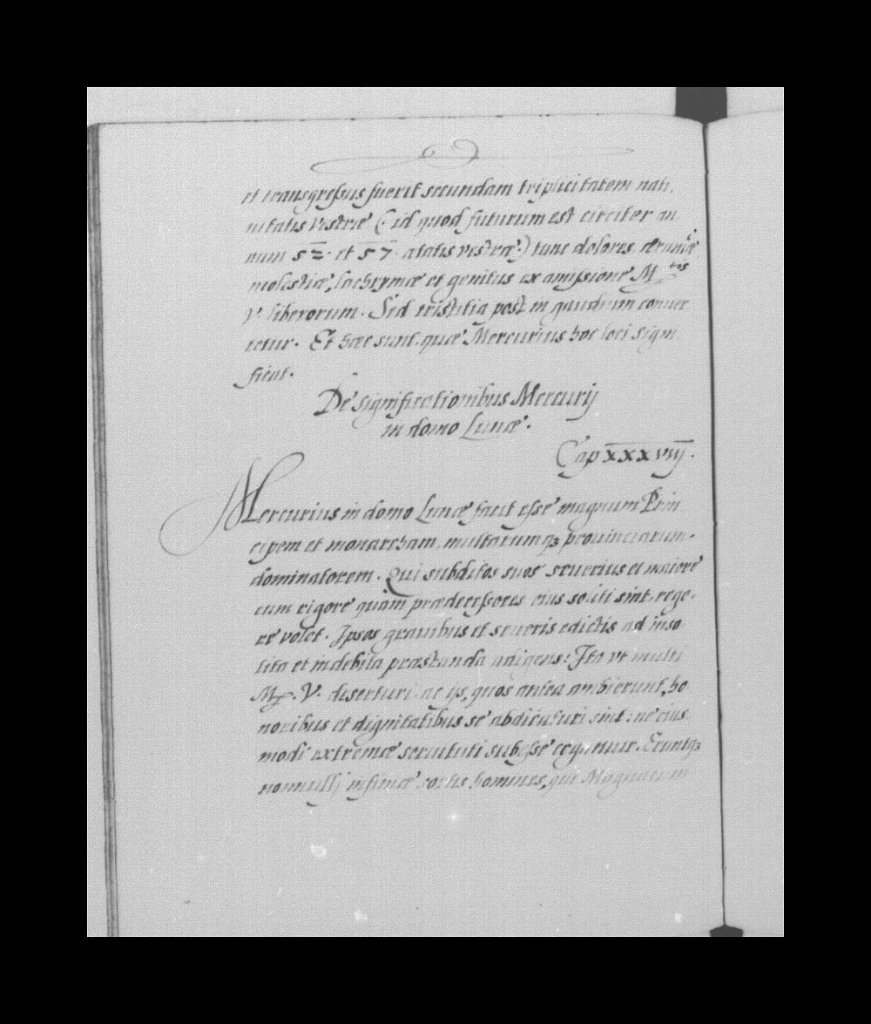 et transgressus fuerit secundam triplicitatem nati,
uitatis vestræ (id quod futurum est circiter an
num 52. et 57. ætatis vestræ) tunc dolores, ærumnæ
molestiæ, lachrymæ et gemitus ex amissione M.tis
V. liberorum. Sed tristitia post in gaudium conuer
tetur. Et hæc sunt quæ Mercurius hoc loci signi
ficat.
De significationibus Mercurij
in domo Lunæ.
Cap xxxviij.
Mercurius in domo Lunæ facit esse magnum Prin
cipem et monarcham, multarumq3 prouinciarum
dominatorem. Qui subditos suos seuerius et maiore
cum rigore quam prædecessores eius soliti sint rege,
re volet. Ipsos grauibus et seueris edictis ad inso
lita et indebita præstanda adigens: Ita vt multi
M. V. deserturi ac ijs, quos antea ambierunt, ho
noribus et dignitatibus se abdicaturi sint: ne eius
modi extremæ seruituti subesse cogantur. Eruntq3
nonnulli infimæ sortis homines, qui Magnatum